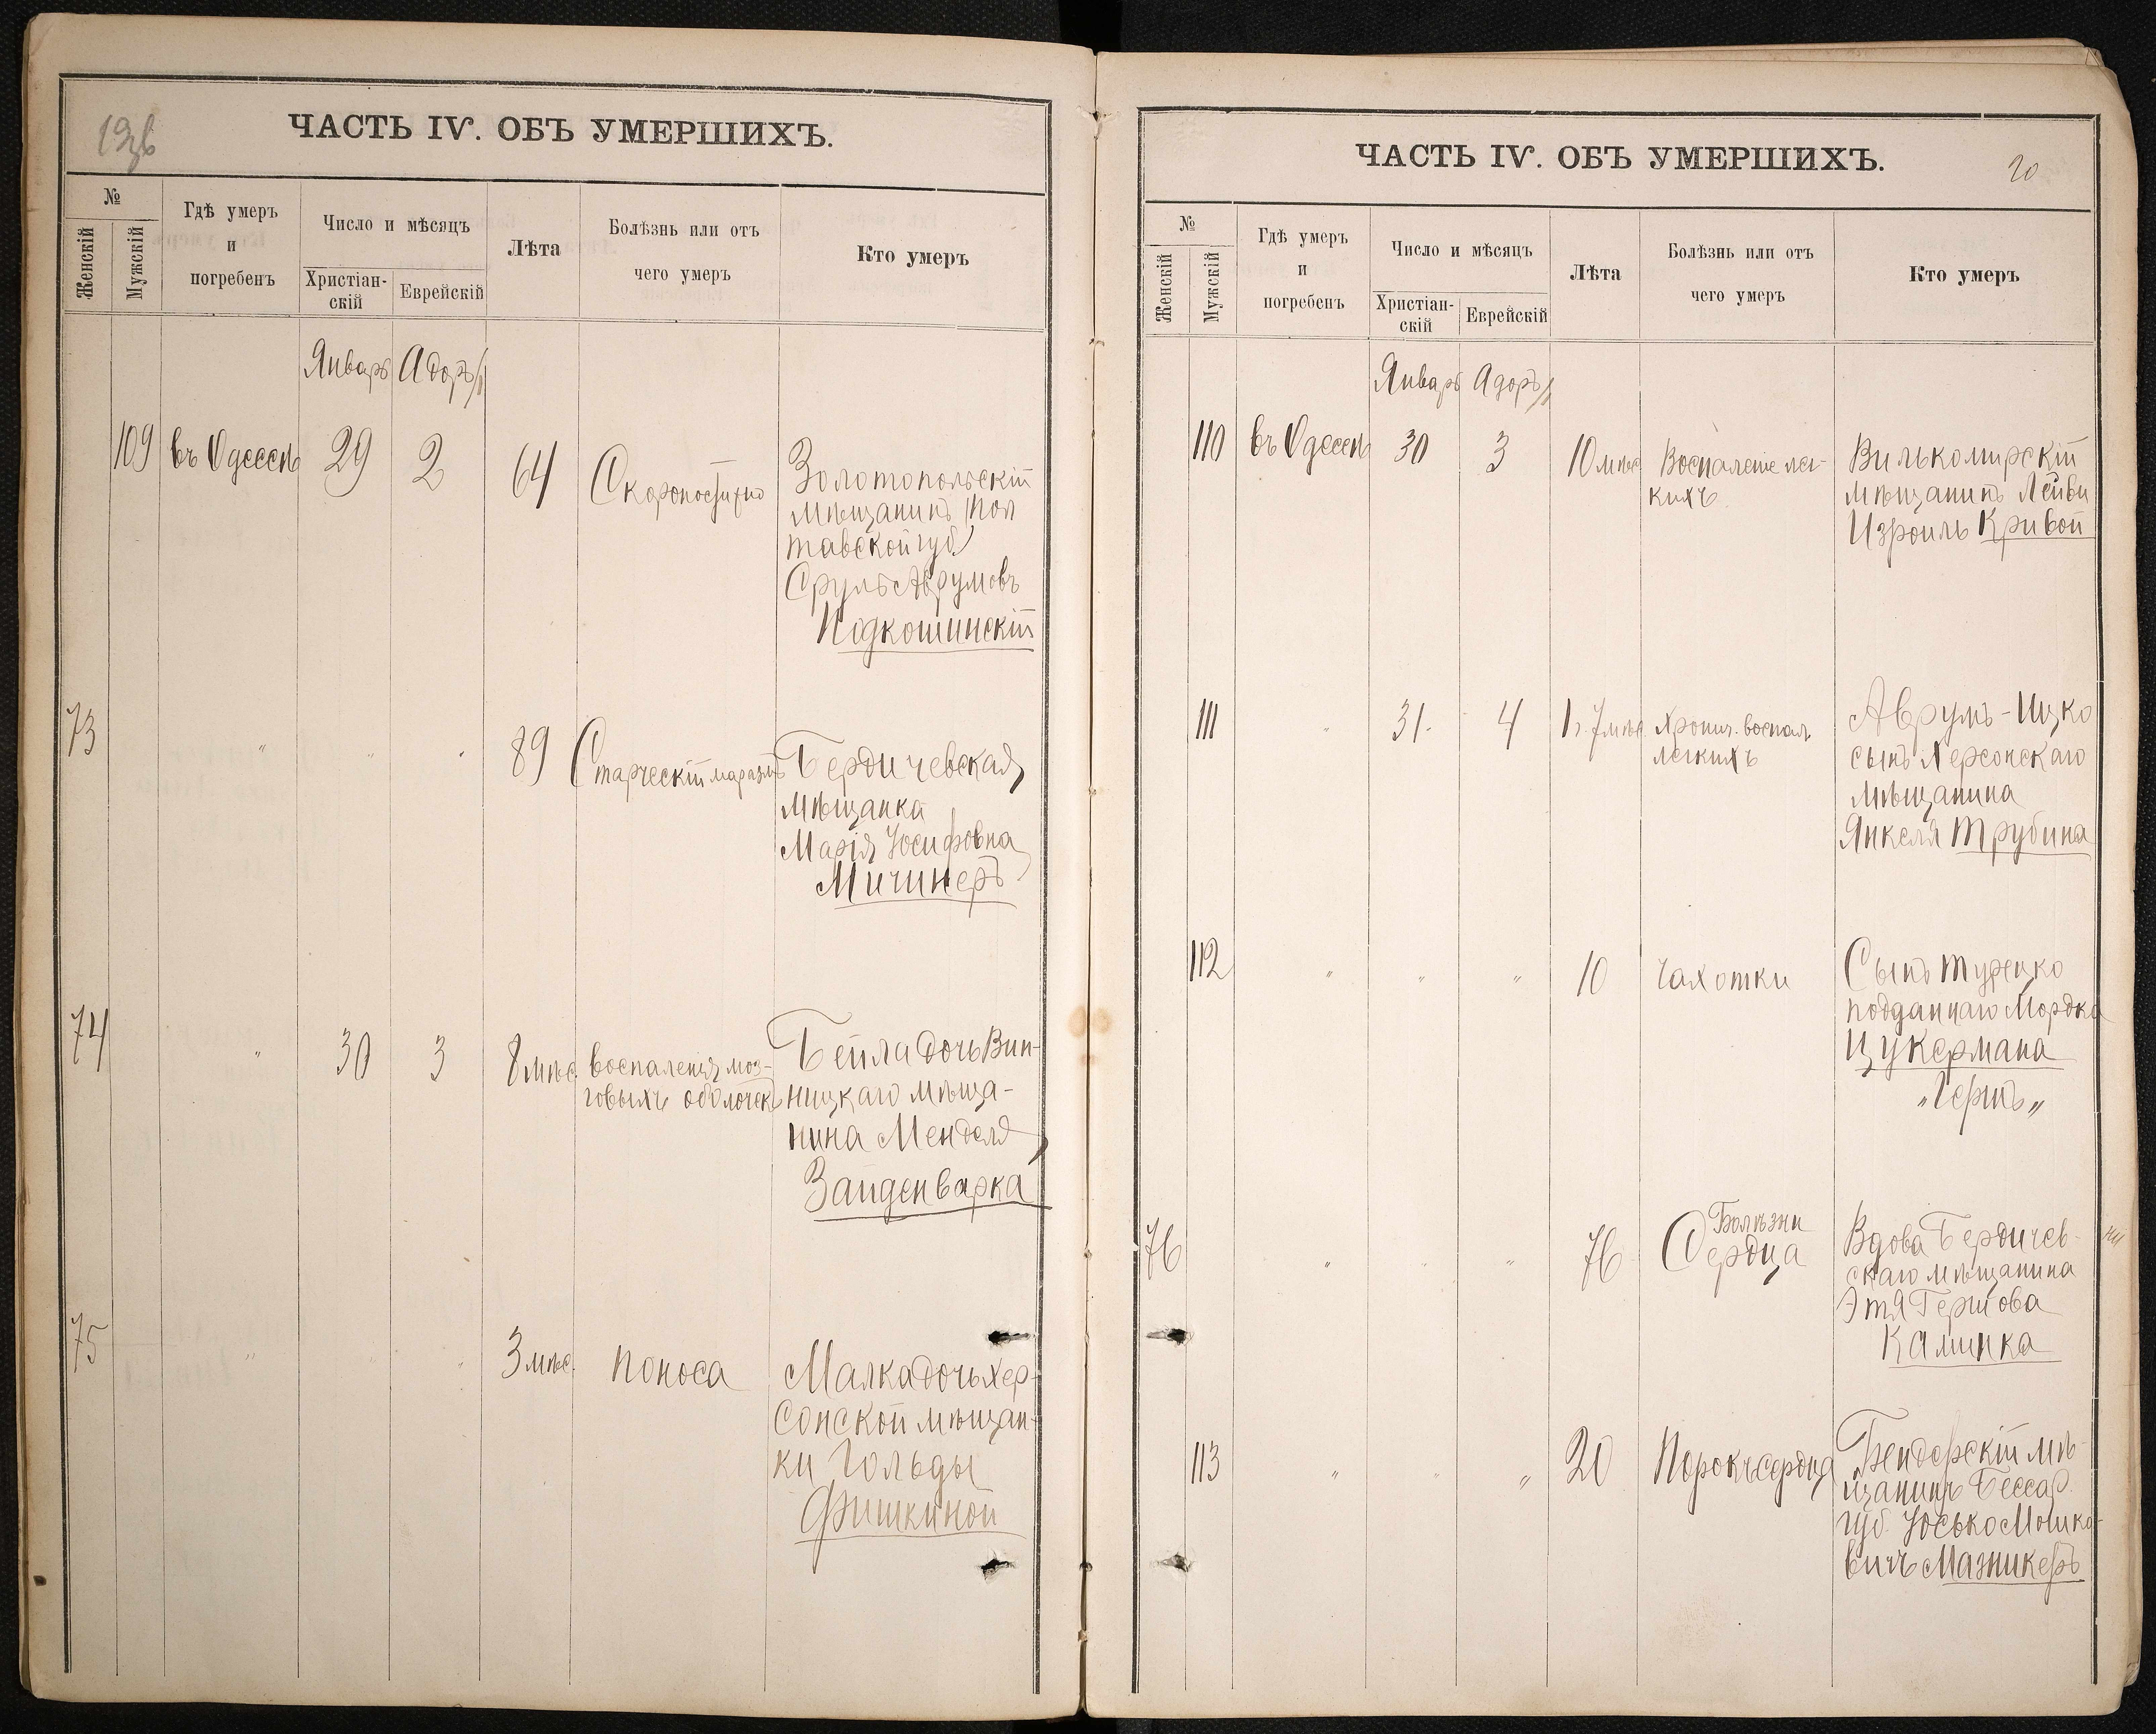 ЧАСТЬ IV. ОБЪ УМЕРШИХЪ.
№
Женскій
Мужскій
Гдѣ умеръ
и
погребенъ
Число и мѣсяцъ
Христіан-
скій
Еврейскій
Лѣта
Болѣзнь или отъ
чего умеръ
Кто умеръ
Январь Адоръ
109 въ Одессѣ 29 2 64 Скоропостижно
Золотопольскій
мѣщанинъ (Пол
тавской губ)
Сруль Аврумовъ
Подкошинскій
73 " " " 89 Старческій маразмъ
Бердичевская
мѣщанка
Марія Іосифовна
Мичинеръ
74 " 30 3 8 мѣс. воспаленія моз-
говыхъ оболочекъ
Бейла дочь Вин-
ницкаго мѣща-
нина Менделя
Зайденварка
75 " " " 3 мѣс. поноса
Малка дочь Хер-
сонской мѣщан-
ки Гольды
Фишкиной
ЧАСТЬ IV. ОБЪ УМЕРШИХЪ.
20
№
Женскій
Мужскій
Гдѣ умеръ
и
погребенъ
Число и мѣсяцъ
Христіан-
скій
Еврейскій
Лѣта
Болѣзнь или отъ
чего умеръ
Кто умеръ
Январь Адоръ
110 въ Одессѣ 30 3 10 мѣс Воспаленіе лег-
кихъ
Вилькомирскій
мѣщанинъ Лейви
Изроиль Кривой
111 " 31. 4 1 г. 7 мѣс. Хронич. воспал.
легкихъ
Аврумъ-Ицко
сынъ Херсонскаго
мѣщанина
Янкеля Трубина
112 " " " 10 чахотки
Сынъ турецко
подданнаго Мордка
Цукермана
„Герш„
76 " " " 76 Болѣзни
Сердца
Вдова Бердичев-
скаго мѣщанина
Этя Гершова
Каминка
113 " " " 20 Порокъ сердца
Бендерскій мѣ-
щанинъ Бессар.
губ. Юсько Мошко-
вичъ Мазникеръ